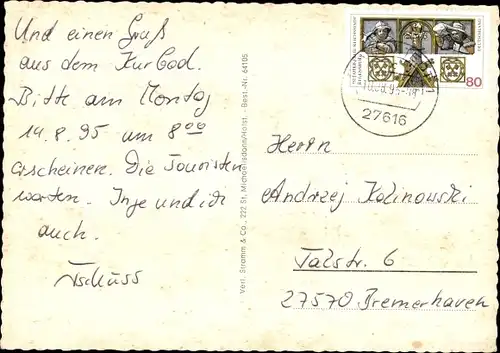 Und einen Gruß
aus dem Kurbad.
Bitte am Montag
14.8.95 um 8⁰⁰
erscheinen. Die Touristen
warten. Inge und ich
auch.
Tschüss
Verl. Stramm & Co., 222 St. Michaelisdonn/Holst. - Best.-Nr. 64105
DEUTSCHLAND
80
27616
Herrn
Andrzej Kalinowski
Talstr. 6
27570 Bremerhaven